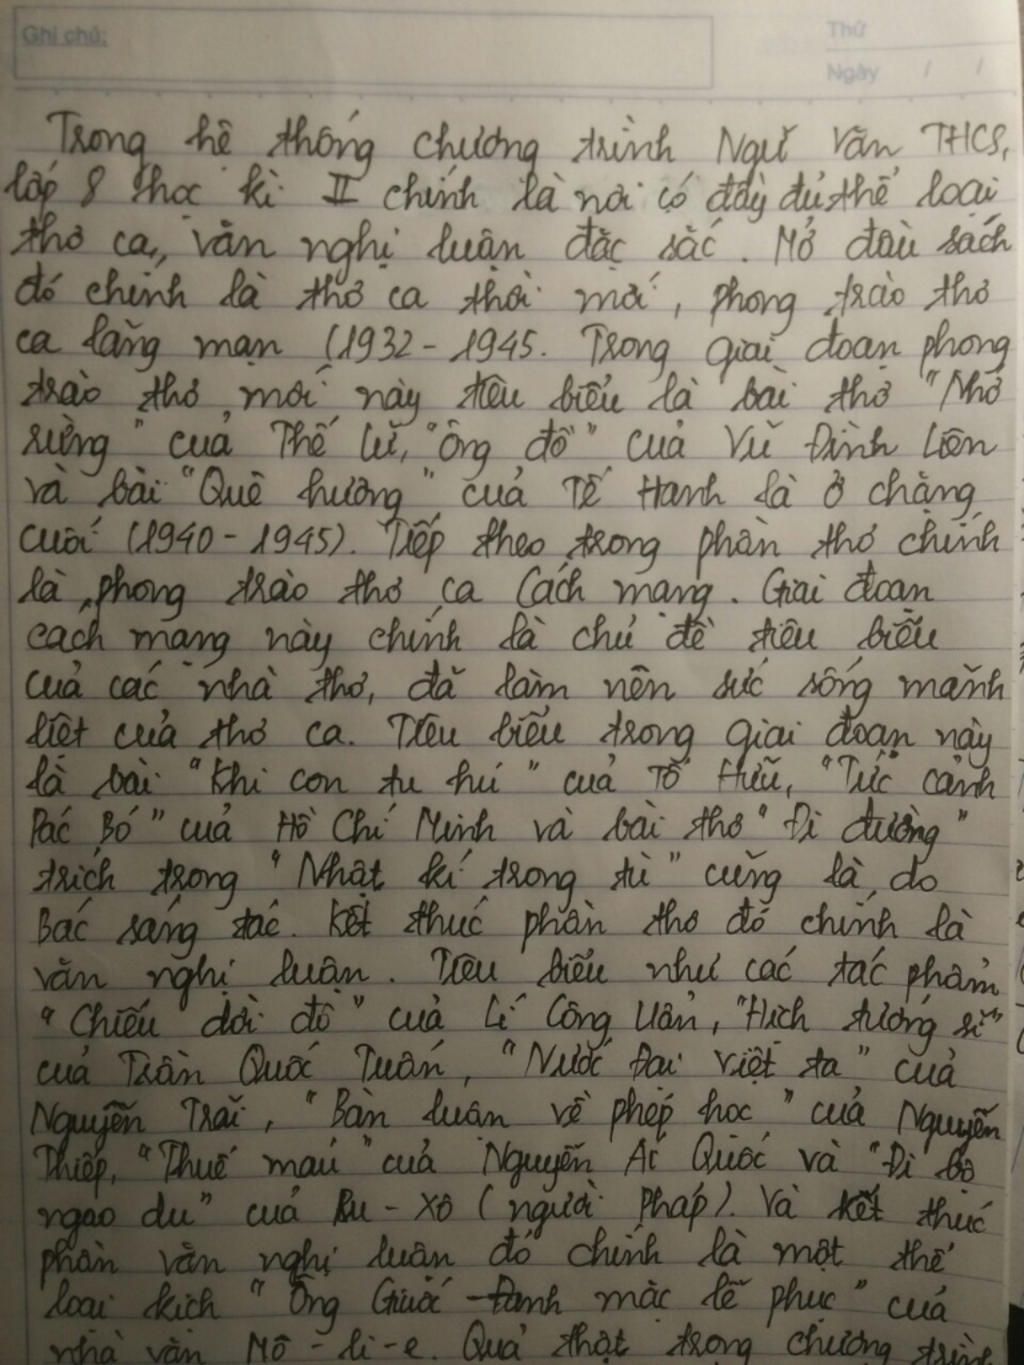 Ghi chú:
Thứ
Ngày / /
Trong hệ thống chương trình Ngữ Văn THCS,
lớp 8 học kì II chính là nơi có đầy đủ thể loại
thơ ca, văn nghị luận đặc sắc. Mở đầu sách
đó chính là thơ ca thời mới, phong trào thơ
ca lãng mạn (1932 - 1945. Trong giai đoạn phong
trào thơ mới này tiêu biểu là bài thơ "Nhớ
rừng" của Thế Lữ, "Ông đồ" của Vũ Đình Liên
và bài "Quê hương" của Tế Hanh là ở chặng
cuối (1940 - 1945). Tiếp theo trong phần thơ chính
là phong trào thơ ca Cách mạng. Giai đoạn
cách mạng này chính là chủ đề tiêu biểu
của các nhà thơ, đã làm nên sức sống mãnh
liệt của thơ ca. Tiêu biểu trong giai đoạn này
là bài "Khi con tu hú" của Tố Hữu, "Tức cảnh
Pác Bó" của Hồ Chí Minh và bài thơ "Đi đường"
trích trong "Nhật kí trong tù" cũng là do
Bác sáng tác. Kết thúc phần thơ đó chính là
văn nghị luận. Tiêu biểu như các tác phẩm
"Chiếu dời đô" của Lí Công Uẩn, "Hịch tướng sĩ"
của Trần Quốc Tuấn, "Nước Đại Việt ta" của
Nguyễn Trãi, "Bàn luận về phép học" của Nguyễn
Thiếp, "Thuế máu" của Nguyễn Ái Quốc và "Đi bộ
ngao du" của Ru - Xô (người Pháp). Và kết thúc
phần văn nghị luận đó chính là một thể
loại kịch "Ông Giuốc - Đanh mặc lễ phục" của
nhà văn Mô - li - e. Quả thật trong chương trình